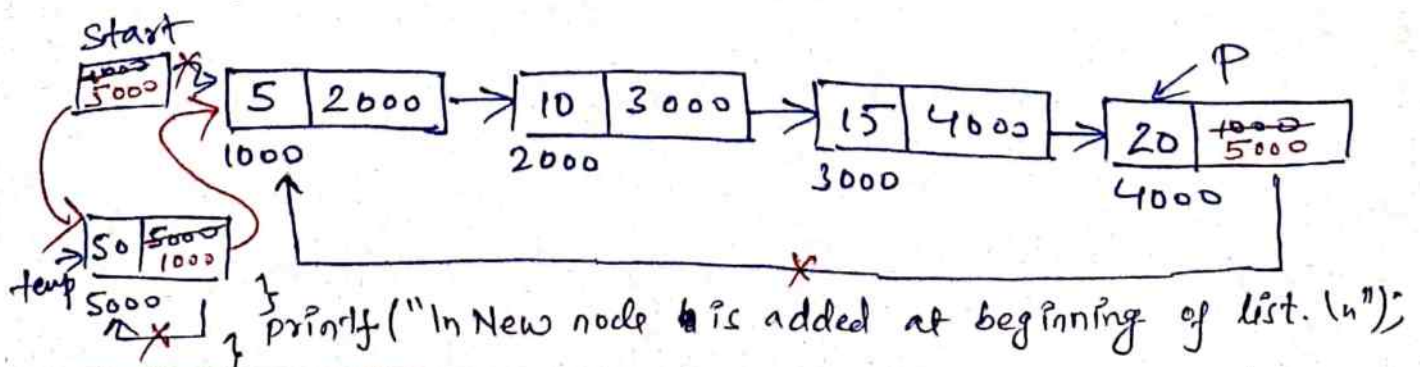 Start
P
1000
5000
5 2000
10 3000
15 4000
20 1000
5000
1000
2000
3000
4000
50 5000
1000
temp
5000
}
printf("\n New node is added at beginning of list. \n");
}